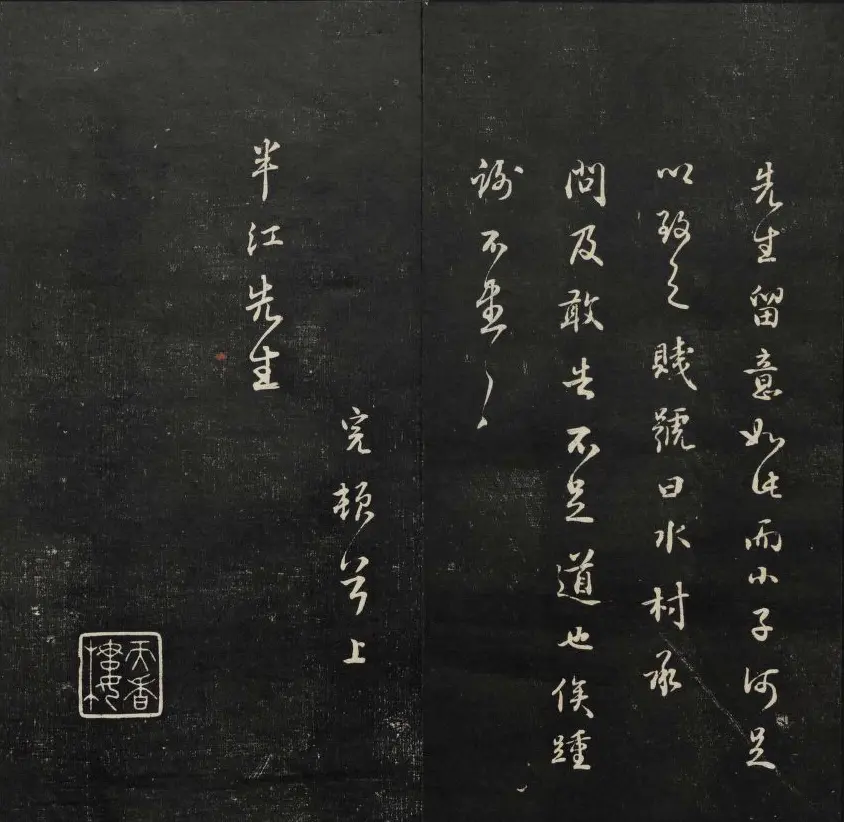 先生留意如此而小子何足
以致之賤號曰水村承
問及敢告不足道也俟踵
謝不盡〻
完頓首上
半江先生
天香樓